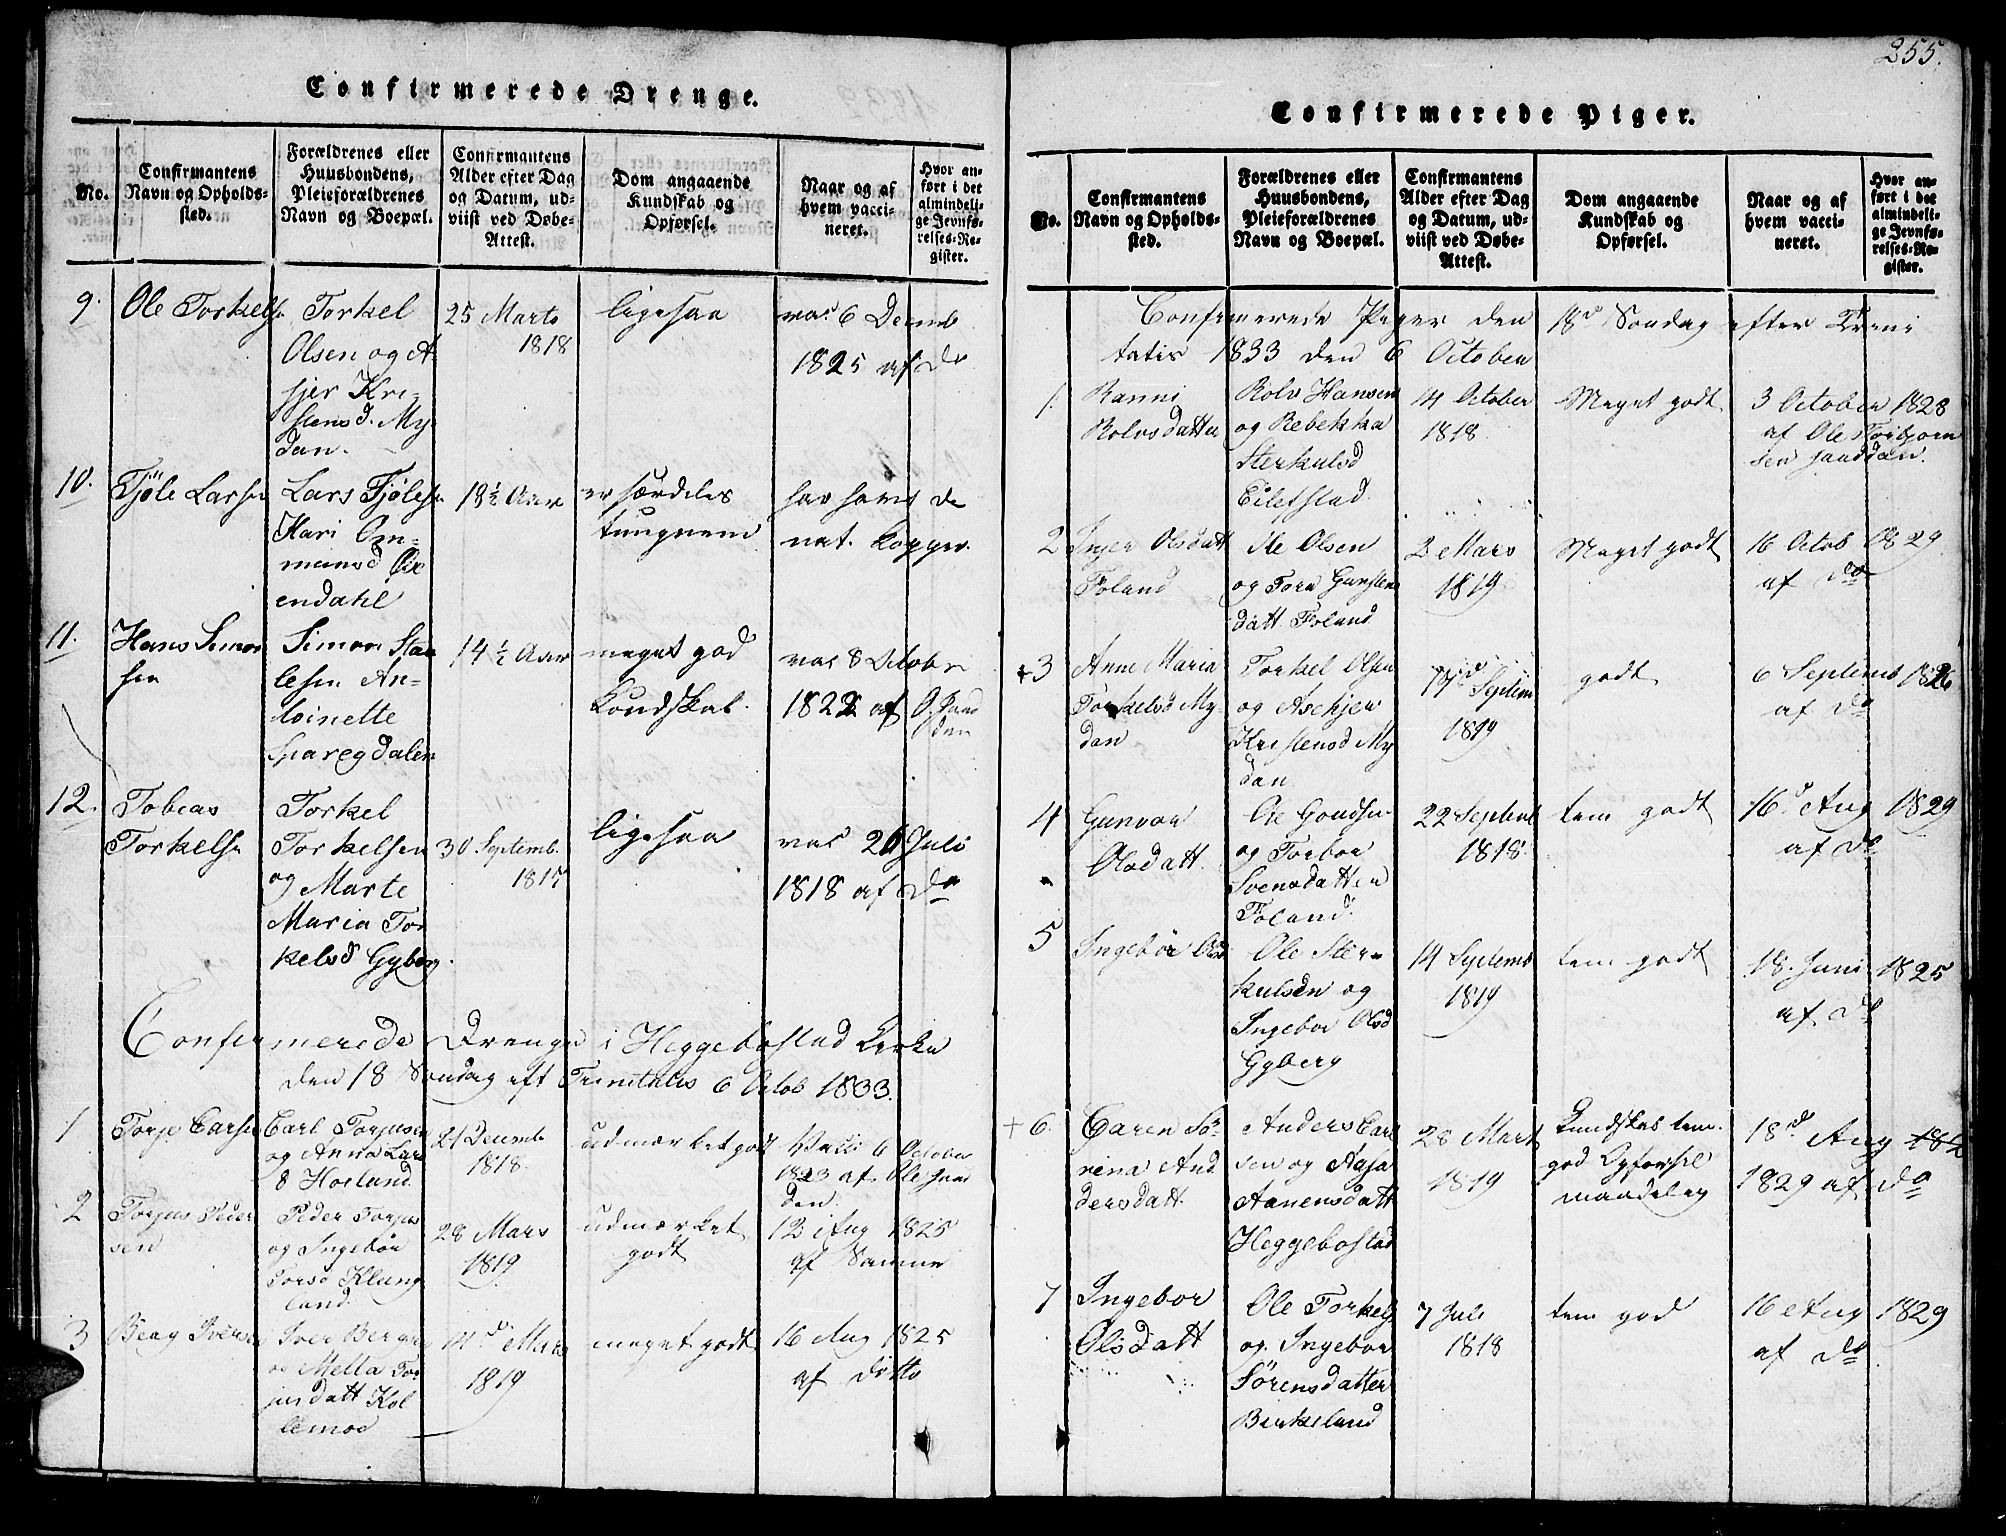 255.
Confirmerede Drenge.
No.
Confirmantens Navn og Opholdssted.
Forældrenes eller Huusbondens, Pleieforældrenes Navn og Boepæl.
Confirmantens Alder efter Dag og Datum, udviist ved Døbe-Attest.
Dom angaaende Kundskab og Opførsel.
Naar og af hvem vaccineret.
Hvor anført i det almindelige Jevnførelses-Register.
9. Ole Torkels
Torkel
Olsen og A
sjer Kri-
stensd. My
dan.
25 Marts
1818
ligesaa
vac 6 Decmb
1825 af do
10. Tjöle Larsen
Lars Tjölesen
Kari Om-
mensd
endahl
18½ Aar
er særdeles
tungnem
har havt de
nat. Kopper.
11. Hans Simon
sen
Simon Staa
lesen An-
toinette
Sparegdalen
14½ Aar
meget god
Kundskab.
vac 8 Octobr
1822 af O. Jaad
den
12. Tobias
Torkelsen
Torkel
Torkelsen
og Marte
Maria Tor
kelsd Gyberg.
30. Septemb.
1817
ligesaa
vac 26 Juli
1818 af do
Confirmerede Drenge i Heggebostad Kirke
den 18 Sondag eft Trinitatis 6 Octob 1833.
1 Torje Carlsen
Carl Torjusen
og Anna Lars
d Höiland
21 Decemb
1818.
udmærket godt
Vacci 6 October
1823 af Ole Jaad
den
2 Torjus Peder
sen
Peder Torjus
og Ingebör
Torsd Klung
land.
28 Mars
1819
udmærket
godt
12 Aug 1825
af Samme
3 Berg Iversen
Iver Berge
og Mella Tor
jusdatt Kol
lemoe
14d Mars
1819
meget godt
16 Aug 1825
af ditto
Confirmerede Piger.
No.
Confirmantens Navn og Opholdssted.
Forældrenes eller Huusbondens, Pleieforældrenes Navn og Boepæl.
Confirmantens Alder efter Dag og Datum, udviist ved Døbe-Attest.
Dom angaaende Kundskab og Opførsel.
Naar og af hvem vaccineret.
Hvor anført i det almindelige Jevnførelses-Register.
Confirmerede Piger den 18d Sondag efter Trini
tatis 1833 den 6 October
1. Ranni
Rolvsdatter
Rolv Hansen
og Rebekka
Sterkulsd
Eilefstad
14 October
1818.
Meget godt
3 October 1828
af Ole Torbjorn
sen Jaaddan.
2 Inger Olsdatt
Foland
Ole Olsen
og Tora Gunstens
datt Foland
2 Mars
1819
Meget godt
16 Octob 1829
af do
+3 Anne Maria
Torkelsd My
dan
Torkel Olsen
og Aschjer
Kristensd My
dan
17d Septem
1819
godt
6 Septemb 1826
af do
4 Gunvor
Olsdatt
Ole Goudsen
og Torbor
Svensdatter
Foland.
22 Septemb
1818.
tem godt
16d Aug 1829
af do
5 Ingebör Olsd
Ole Ster-
kulsen og
Ingebor Olsd
Gyberg
14 Septemb
1819
tem godt
18. Juni 1825
af do
+ 6. Caren Sö
rina And
dersdatt.
Anders Carl
sen og Aasa
Aanensdatt
Heggebostad
28 Mart
1819
Kundskab tem.
god Opforsel
maadelig
18d Aug 182
1829 af do
7 Ingebor
Olsdatt
Ole Torkels
og Ingebor
Sörensdatter
Birkeland
7 Juli
1818
tem god
16 Aug 1829
af do